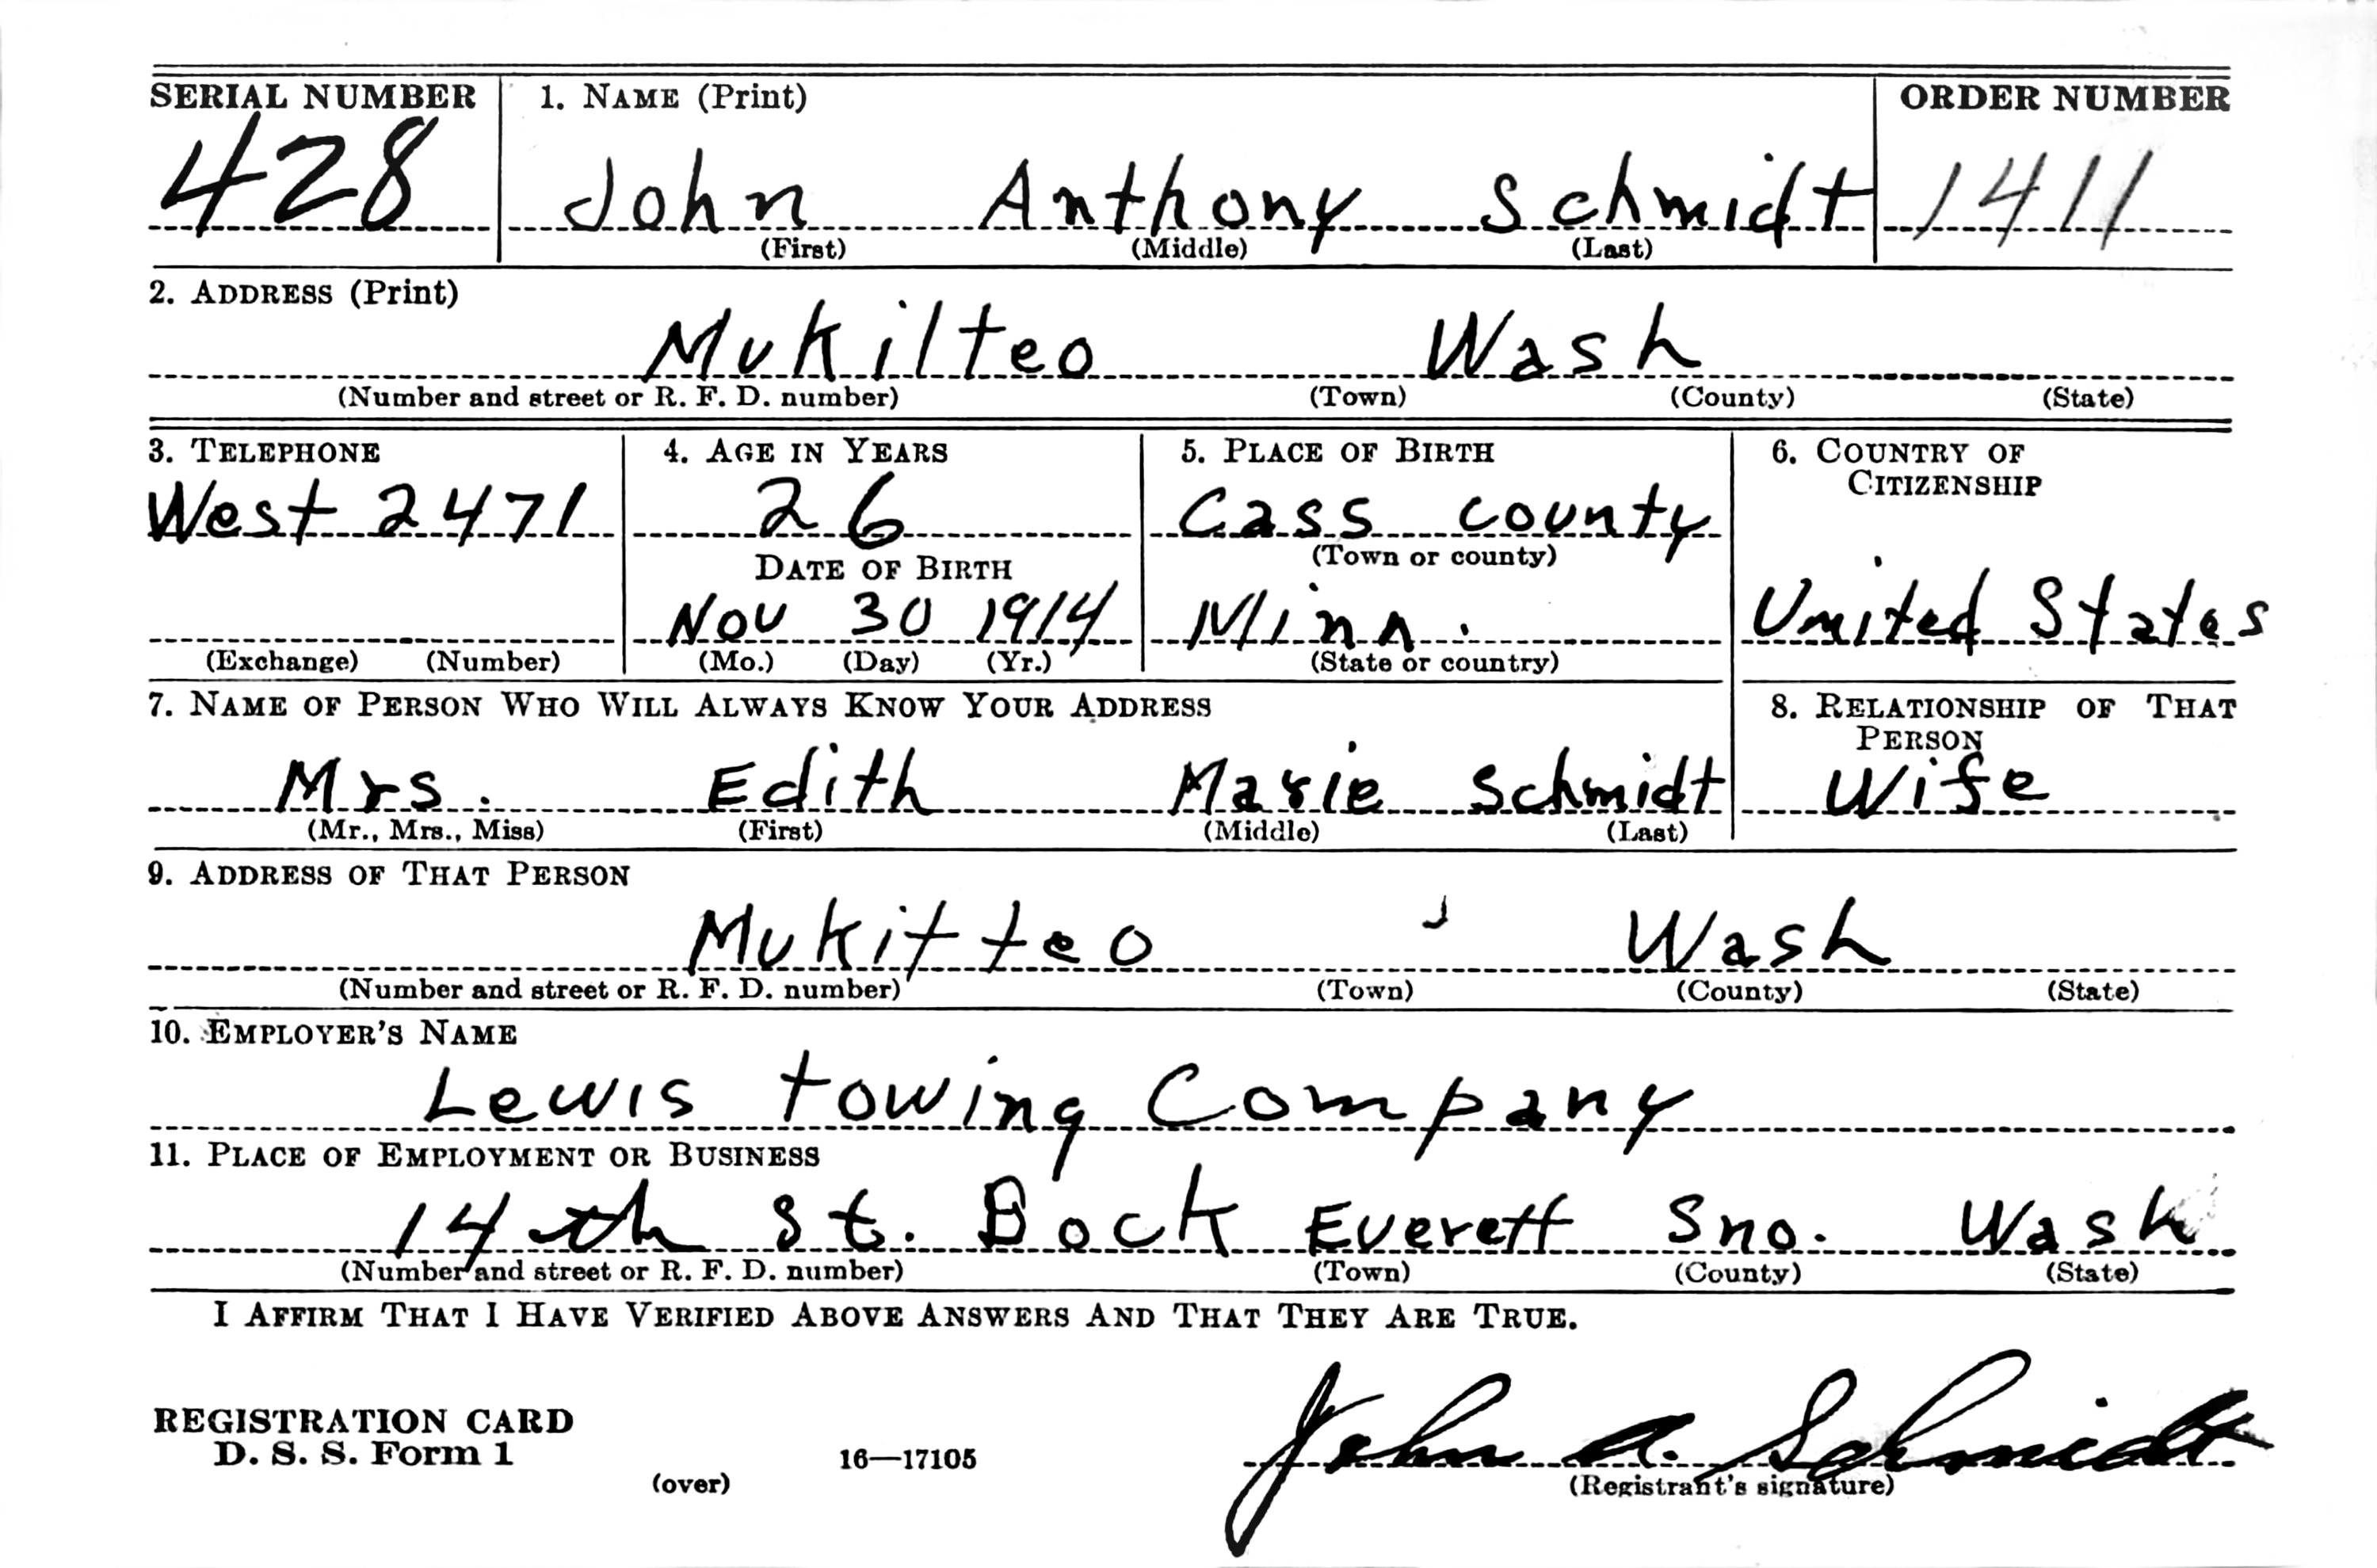 SERIAL NUMBER 1. NAME (Print) ORDER NUMBER
428 John Anthony Schmidt 1411
(First) (Middle) (Last)
2. ADDRESS (Print)
Mukilteo Wash
(Number and street or R. F. D. number) (Town) (County) (State)
3. TELEPHONE 4. AGE IN YEARS 5. PLACE OF BIRTH 6. COUNTRY OF
CITIZENSHIP
West 2471 26 Cass county
DATE OF BIRTH (Town or county)
Nov 30 1914 Minn. United States
(Exchange) (Number) (Mo.) (Day) (Yr.) (State or country)
7. NAME OF PERSON WHO WILL ALWAYS KNOW YOUR ADDRESS 8. RELATIONSHIP OF THAT
PERSON
Mrs. Edith Marie Schmidt Wife
(Mr., Mrs., Miss) (First) (Middle) (Last)
9. ADDRESS OF THAT PERSON
Mukitteo Wash
(Number and street or R. F. D. number) (Town) (County) (State)
10. EMPLOYER'S NAME
Lewis towing Company
11. PLACE OF EMPLOYMENT OR BUSINESS
14th St. Dock Everett Sno. Wash
(Number and street or R. F. D. number) (Town) (County) (State)
I AFFIRM THAT I HAVE VERIFIED ABOVE ANSWERS AND THAT THEY ARE TRUE.
REGISTRATION CARD
D. S. S. Form 1 16—17105 John A. Schmidt
(over) (Registrant's signature)